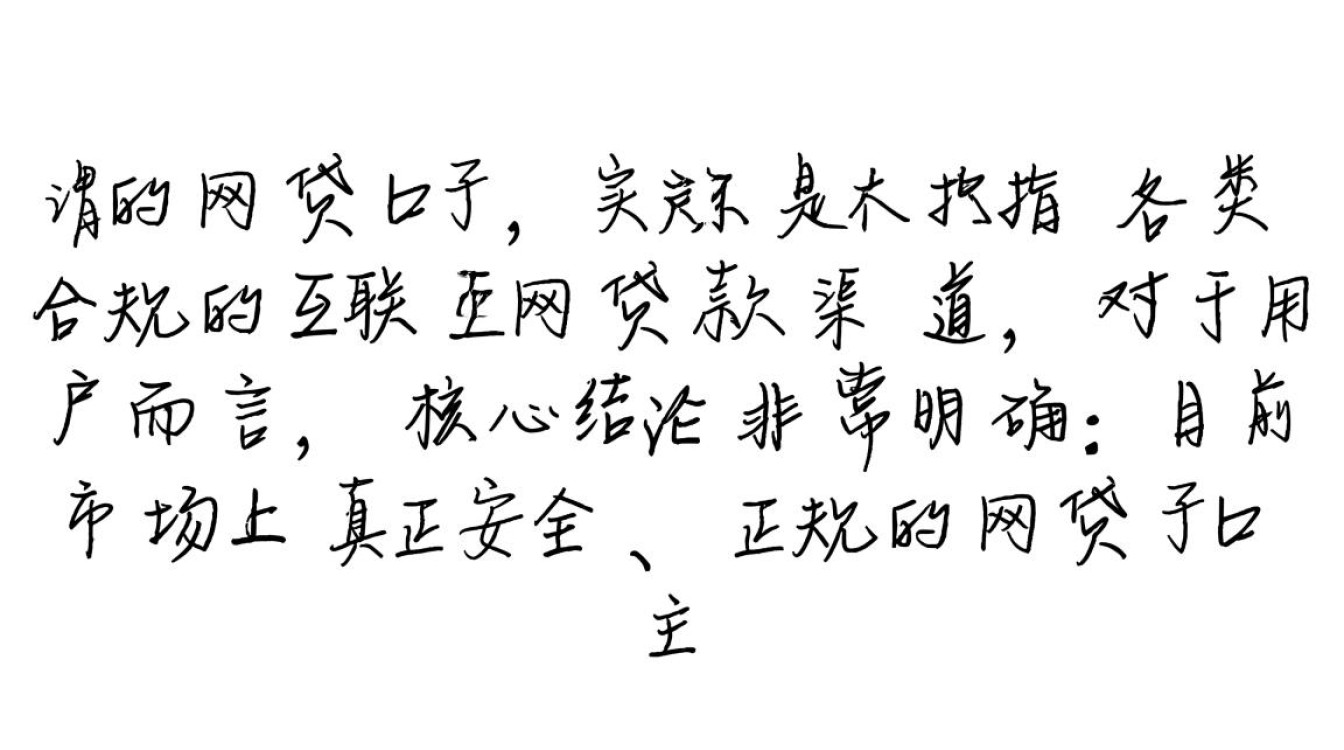 谓的网贷口子，实际是指各类
合规的互联网贷款渠道，对于用
户而言，核心结论非常明确：目前
市场上真正安全、正规的网贷子口
主